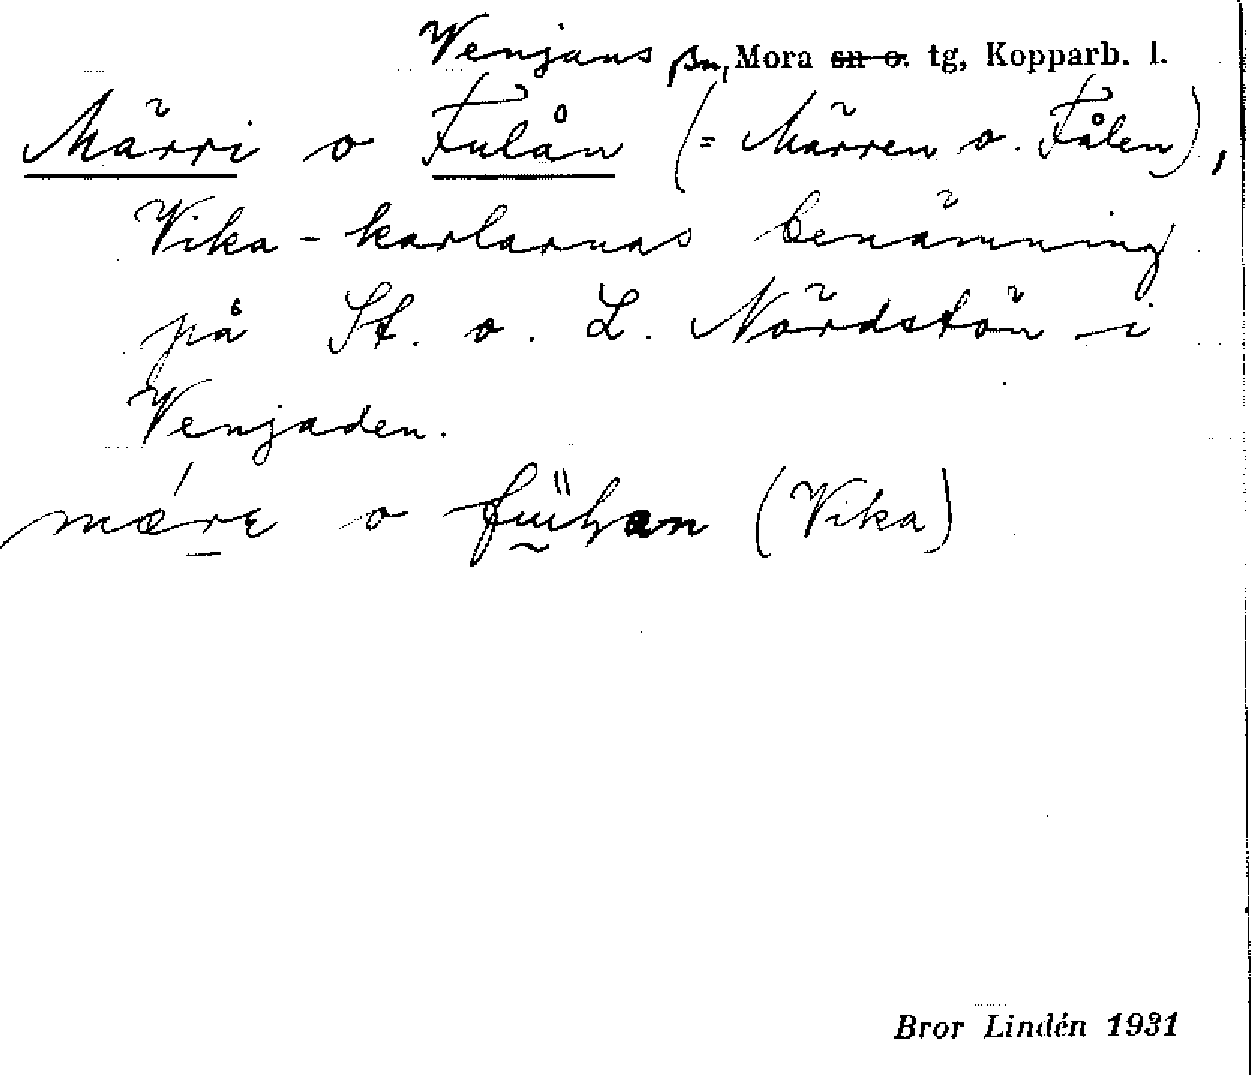 Venjans sn, Mora sn o. tg, Kopparb. l.
Märri o Fulån (= Märren o. Fålen),
Vika-karlarnas benämning
på St. o. L. Nördstön i
Venjaden.
(Vika)
Bror Lindén 1931